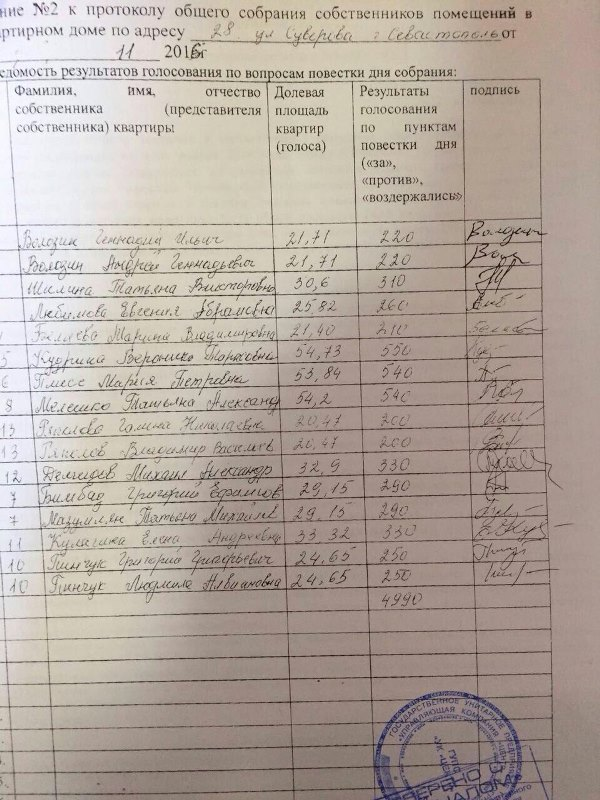 ние №2 к протоколу общего собрания собственников помещений в
артирном доме по адресу 28 ул Суворова г Севастополь от
11 2016г
едомость результатов голосования по вопросам повестки дня собрания:
Фамилия, имя, отчество собственника (представителя собственника) квартиры
Долевая площадь квартир (голоса)
Результаты голосования по пунктам повестки дня («за», «против», «воздержались»
подпись
Володин Геннадий Ильич 21,71 220
Володин Андрей Геннадьевич 21,71 220
Шилина Татьяна Викторовна 30,6 310
Любимова Евгения Абрамовна 25,82 260
Беляева Марина Владимировна 21,40 210
5 Кудрина Вероника Марковна 54,73 550
6 Плисс Мария Петровна 53,84 540
8 Мелешко Татьяна Александр 54,2 540
13 Галина Николаевна 20,47 200
13 Владимир Васильев 20,47 200
12 Михаил Александр 32,9 330
7 Бимбад Григорий Ефимов 29,15 290
7 Татьяна Михайлов 29,15 290
11 Елена Андреевна 33,32 330
10 Пинчук Григорий Григорьевич 24,65 250
10 Пинчук Людмила Алвиановна 24,65 250
4990
ГОСУДАРСТВЕННОЕ УНИТАРНОЕ ПРЕДПРИЯТИЕ
УПРАВЛЯЮЩАЯ КОМПАНИЯ
ГУПС